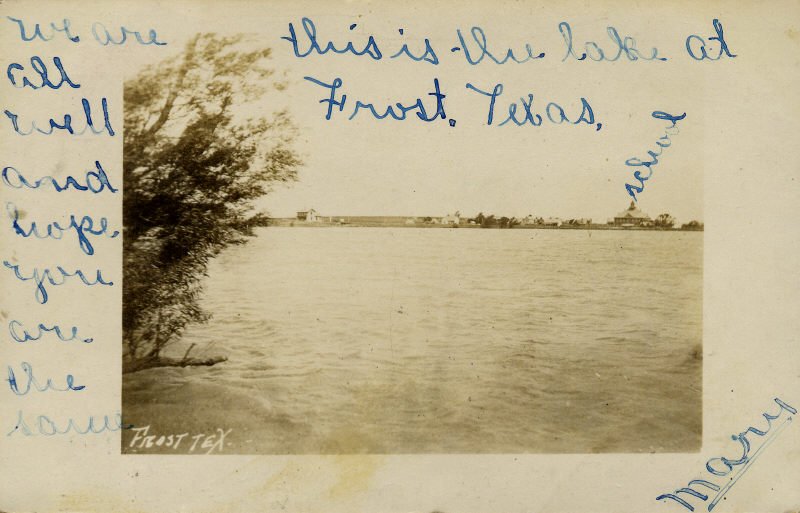 we are
all
well
and
hope.
you
are
the
same
this is the lake at
Frost, Texas.
school
FROST TEX.
Mary